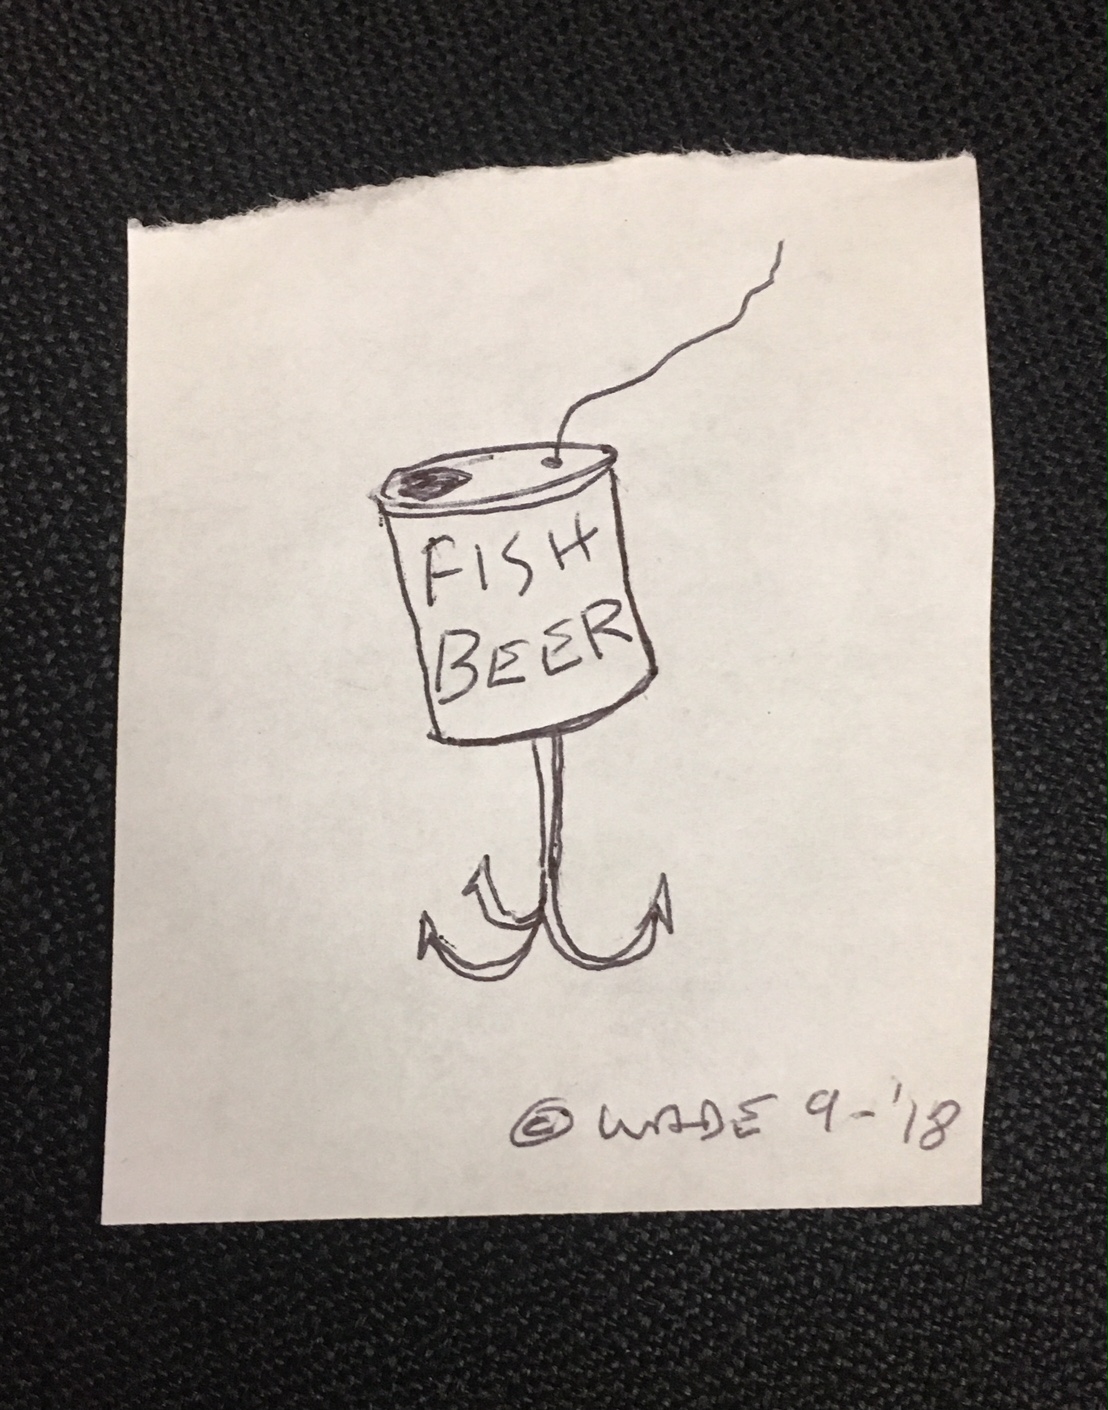 FISH
BEER
© WADE 9-'18